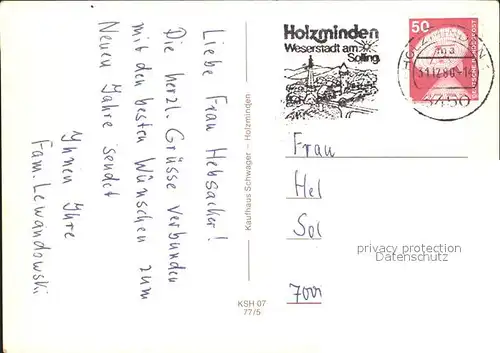 Liebe Frau Hebsacker!
Die herzl. Grüsse verbunden
mit den besten Wünschen zum
Neuen Jahre sendet
Ihnen Ihre
Fam. Lewandowski
Kaufhaus Schwager – Holzminden
KSH 07
77/5
Holzminden
Weserstadt am
Solling
50
HOLZMINDEN
3450
Frau
Hel
Sol
privacy protection
Datenschutz